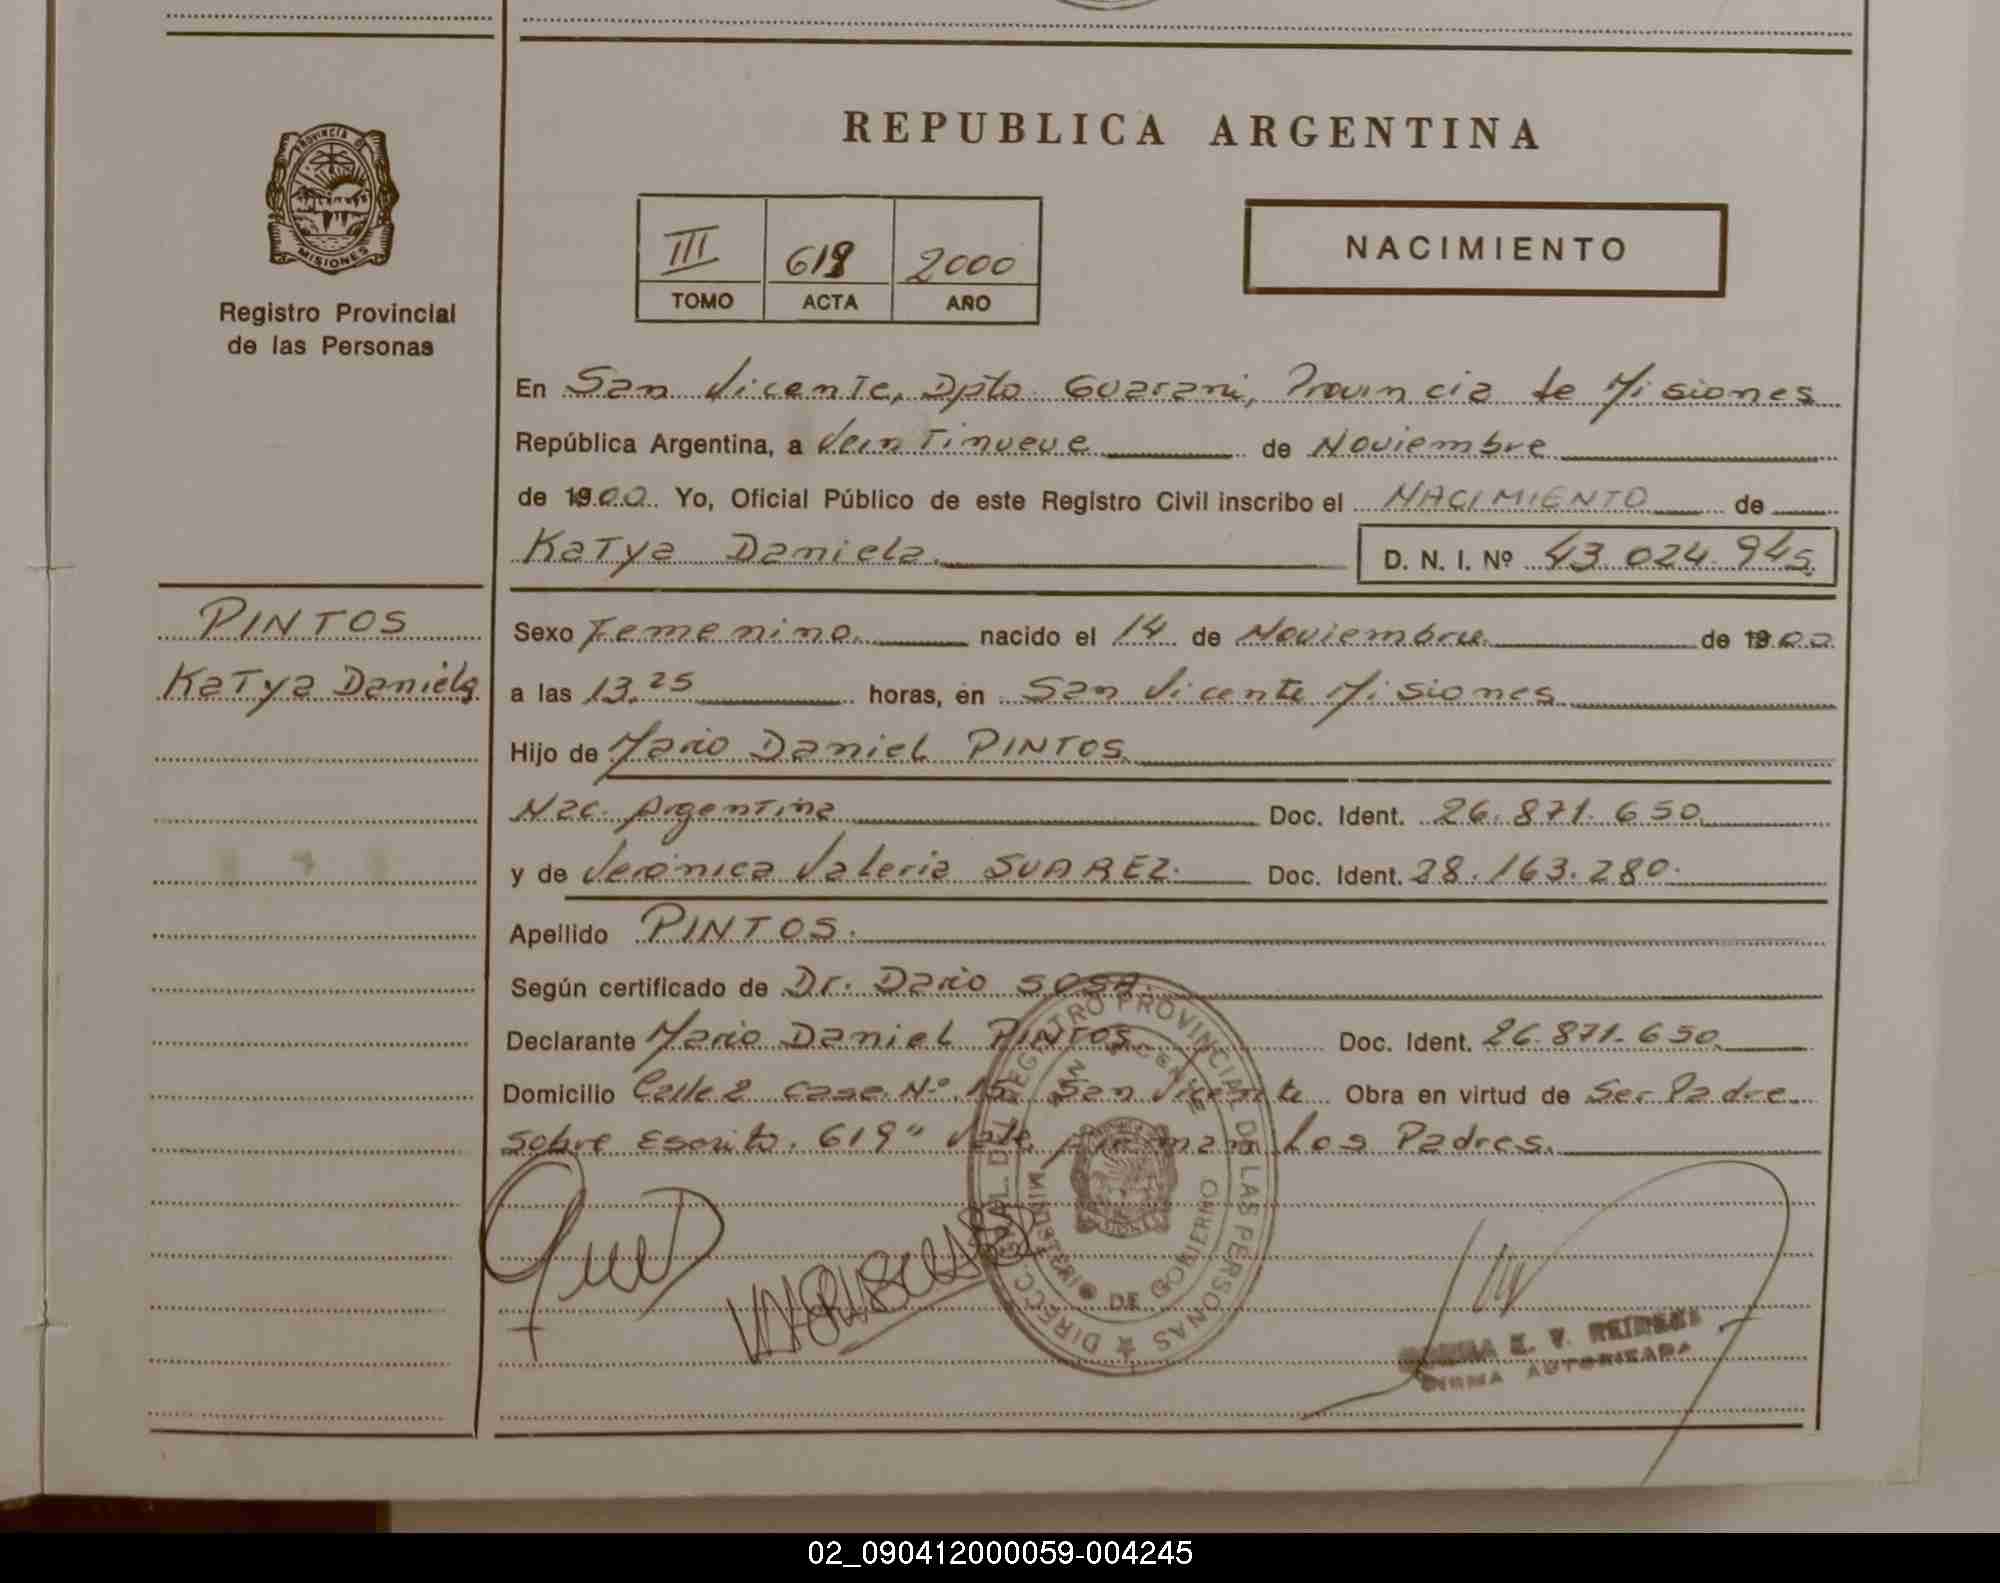 REPUBLICA ARGENTINA
PROVINCIA DE
MISIONES
Registro Provincial
de las Personas
III 619 2000
TOMO ACTA AÑO
NACIMIENTO
En San Vicente, Dpto Guarani, Provincia de Misiones
República Argentina, a VeinTinueve de Noviembre
de 1900 Yo, Oficial Público de este Registro Civil inscribo el NACIMIENTO de
KaTya Daniela. D. N. I. Nº 43.024.945
PINTOS
KaTya Daniela
Sexo Femenino. nacido el 14 de Noviembre de 1900
a las 13,25 horas, en San Vicente Misiones
Hijo de Mario Daniel PINTOS
Nac. Argentina Doc. Ident. 26.871.650
y de Verónica Valeria SUAREZ. Doc. Ident. 28.163.280.
Apellido PINTOS.
Según certificado de Dr. Dario SOSA.
Declarante Mario Daniel PINTOS Doc. Ident. 26.871.650
Domicilio Calle 2 Casa Nº 15 San Vicente Obra en virtud de Ser Padre
Sobre Escrito. 619" Vale. Firman Los Padres.
DIRECC. GRAL. DEL REGISTRO PROVINCIAL DE LAS PERSONAS
SAN VICENTE
MINISTERIO DE GOBIERNO
E. V.
FIRMA AUTORIZADA
02_090412000059-004245